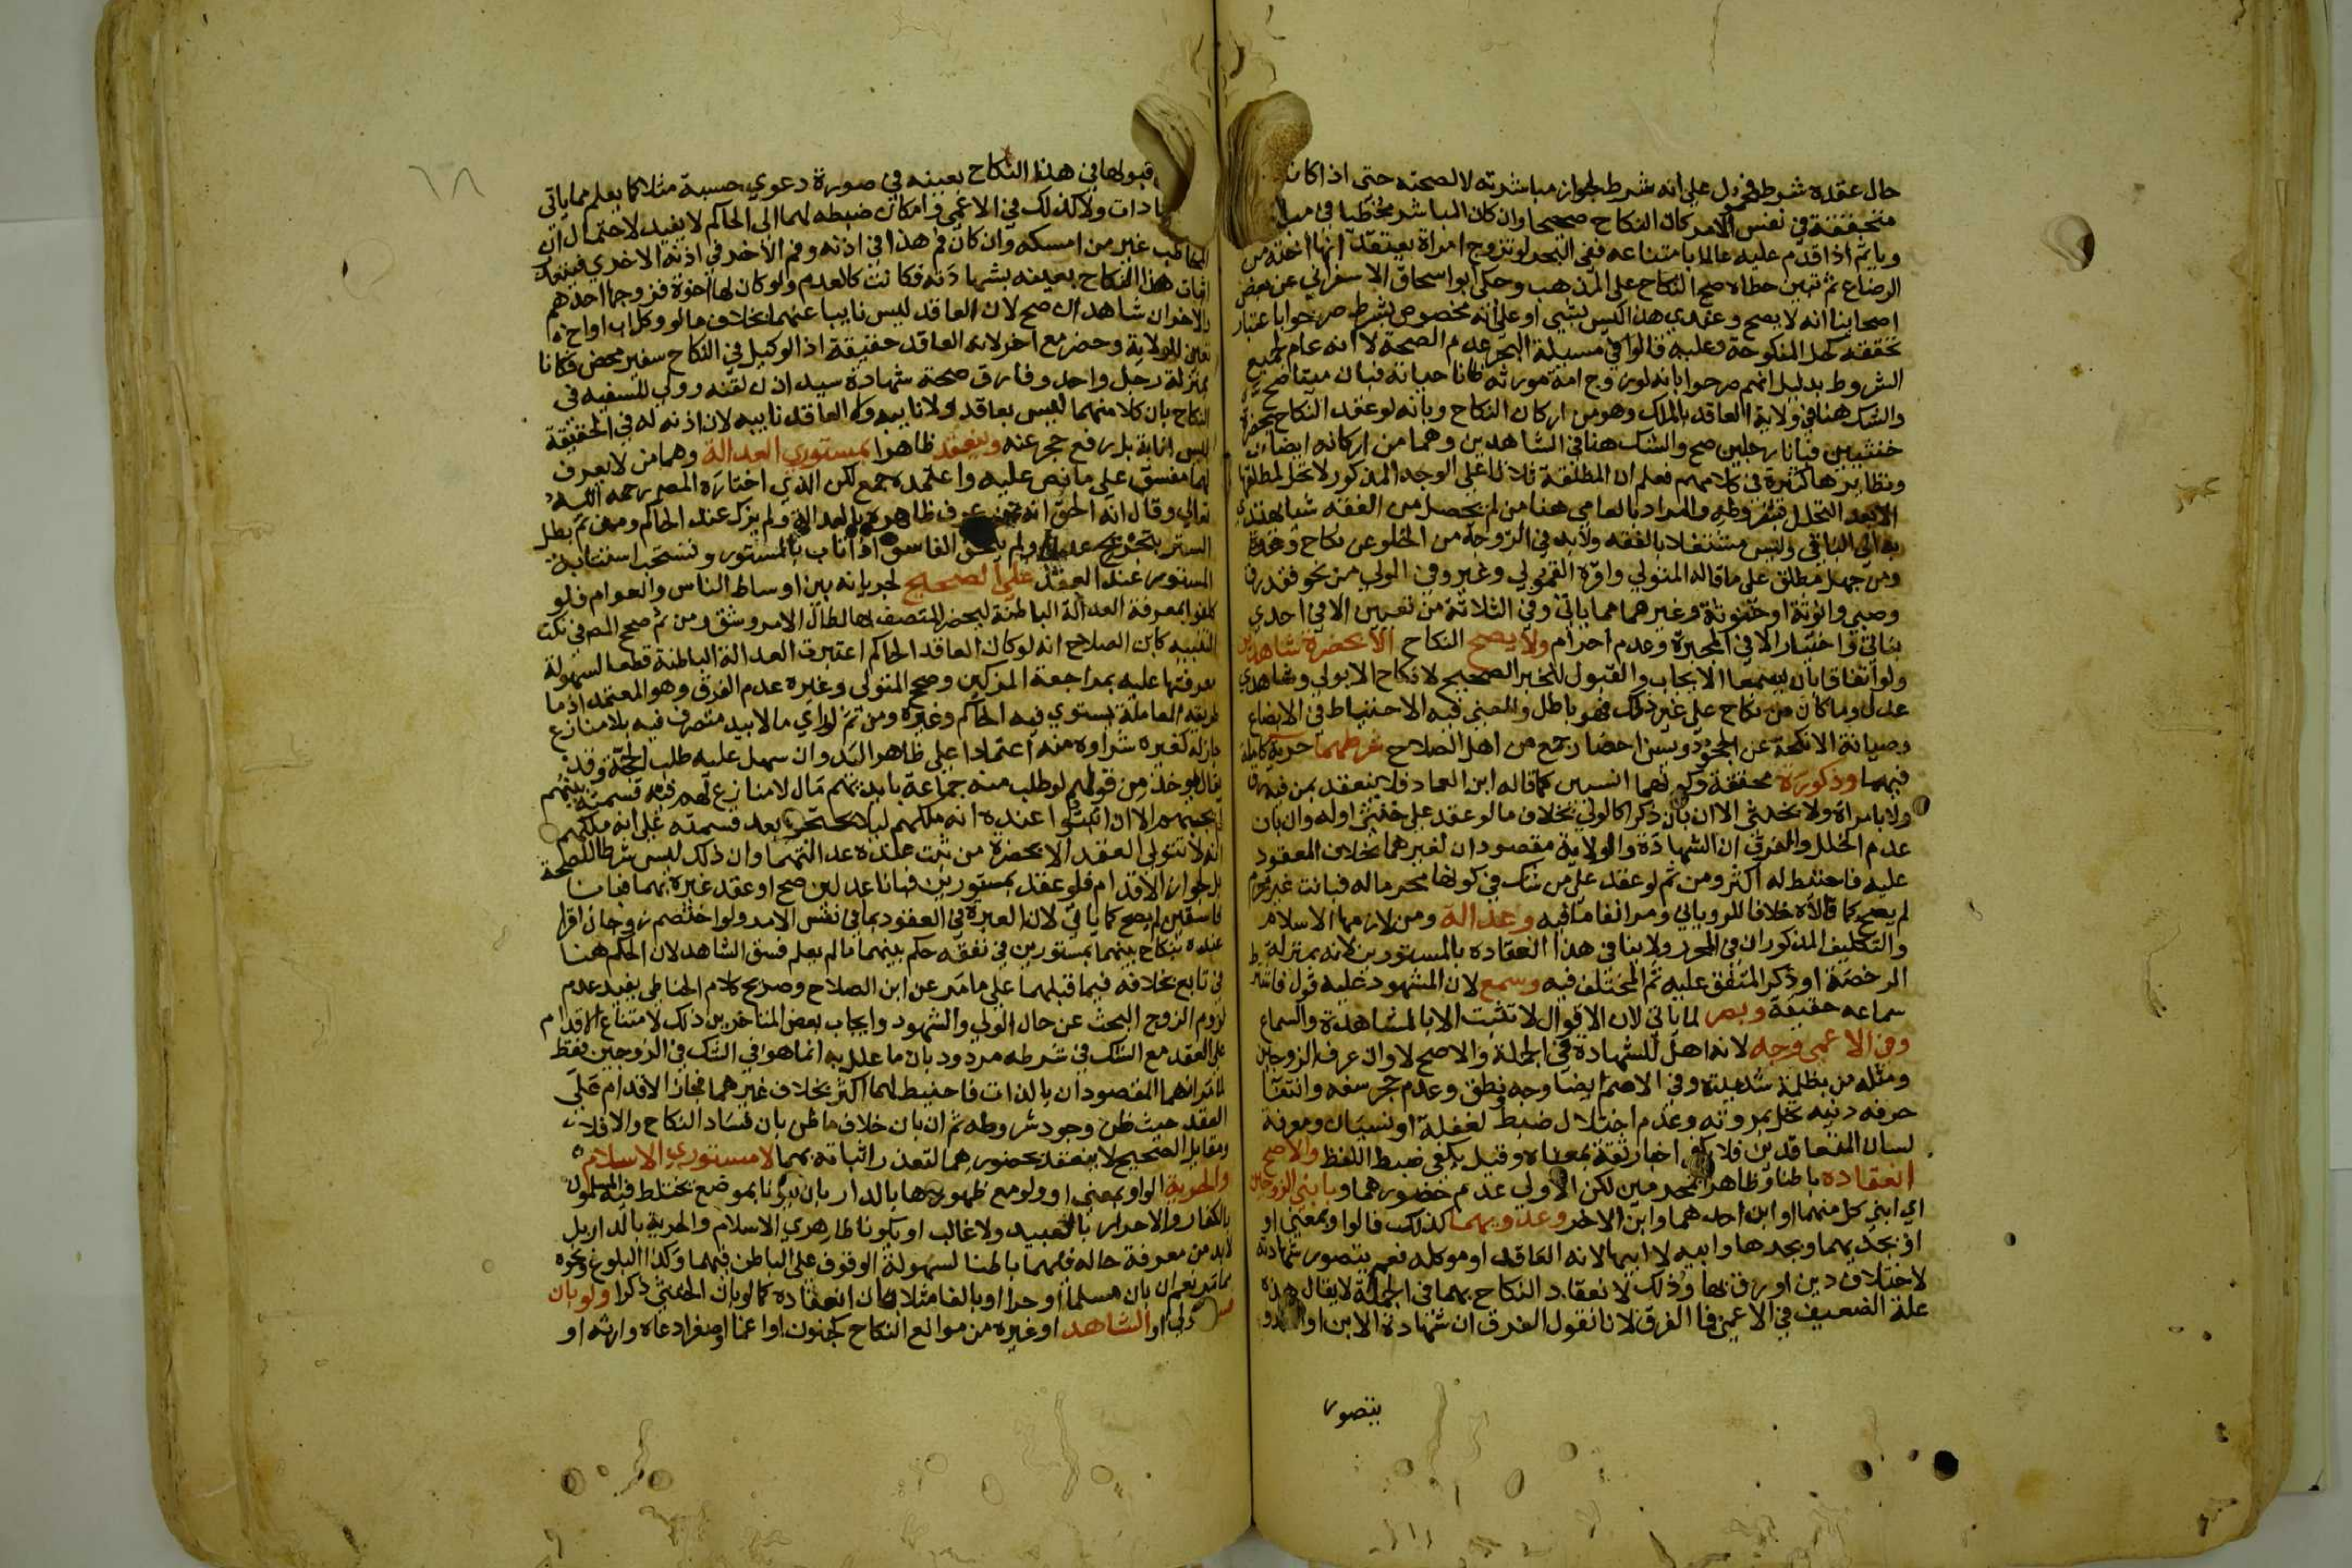 حال عقده شرط فحمول على انه شرط لجواز مباشرته لا لصحته حتى اذا كانت
متحققة في نفس الامر كان النكاح صحيحا وان كان المباشر مخطئا في مباشرته
وياثم اذا قدم عليه عالما بامتناعه ففي البحر لو تزوج امراة يعتقد انها اخته من
الرضاع ثم تبين خطاه صح النكاح على المذهب وحكى ابو اسحاق الاسفرايني عن بعض
اصحابنا انه لا يصح وعندي هذا ليس بشي او على انه مخصوص بشرط صرحوا باعتبار
تحققه كحل المنكوحة وعليه قالوا في مسيلة البحر عدم الصحة لا انه عام لجميع
الشروط بدليل انهم صرحوا بانه لو زوج امة مورثه ظانا حياته فبان ميتا صح
والشك هنا في ولاية العاقد بالملك وهو من اركان النكاح وبانه لو عقد النكاح بحضرة
خنثيين فبانا رجلين صح والشك هنا في الشاهدين وهما من اركانه ايضا
ونظايرها كثيرة في كلامهم فعلم ان المطلقة ثلاثا على الوجه المذكور لا تحل لمطلقها
الا بعد التحلل والمراد بالعامي هنا من لم يحصل من الفقه شيا يهتدي
به الى الباقي وليس مشتغلا بالفقه ولابد في الزوجة من الخلو عن نكاح وعدة
ومن جهل مطلق على ما قاله المتولي واقره القمولي وغيره وفي الولي من نحو فقد رق
وصبي وانوثة او خنوثة وغيرهما مما ياتي وفي الثلاثة من تعيين الا في احدى
بناتي واختيار الا في المجبرة وعدم احرام ولا يصح النكاح الا بحضرة شاهدين
ولو اتفاقا بان يسمعا الايجاب والقبول للخبر الصحيح لا نكاح الا بولي وشاهدي
عدل وما كان من نكاح على غير ذلك فهو باطل والمعنى فيه الاحتياط في الابضاع
وصيانة الانكحة عن الجحود ويسن احضار جمع من اهل الصلاح شرطهما حرية كاملة
فيهما وذكورة محققة وكونهما انسيين كما قاله ابن العماد فلا ينعقد بمن فيه رق
ولا بامراة ولا بخنثى الا ان بان ذكرا كالولي بخلاف ما لو عقد على خنثى او له وان بان
عدم الخلل والفرق ان الشهادة والولاية مقصودان لغيرهما بخلاف المعقود
عليه فاحتيط له اكثر ومن ثم لو عقد على من شك في كونها محرما له فبانت غير محرم
لم يصح كما قالاه خلافا للروياني ومر انفا ما فيه وعدالة ومن لازمها الاسلام
والتكليف المذكوران في المحرر ولا ينافي هذا انعقاده بالمستورين لانه بمنزلة
الرخصة او ذكر المتفق عليه ثم المختلف فيه وسمع لان المشهود عليه قول فاشترط
سماعه حقيقة وبصر لما ياتي لان الاقوال لا تثبت الا بالمشاهدة والسماع
وفي الاعمى وجه لانه اهل للشهادة في الجملة والاصح لا وان عرف الزوجين
ومثله من بظلمة شديدة وفي الاصم ايضا وجه ونطق وعدم حجر سفه وانتفا
حرفة دنية تخل بمروته وعدم اختلال ضبط لغفلة او نسيان ومعرفة
لسان المتعاقدين فلا يكفي اخبار ثقة بمعناه وقيل يكفي ضبط اللفظ والاصح
انعقاده باطنا وظاهرا بمحرمين لكن الاولى عدم حضورهما وبابني الزوجين
اي ابني كل منهما او ابن احدهما وابن الاخر وعدويهما كذلك فالواو بمعنى او
او بجديهما وبجدها وابيه لا ابيها لانه العاقد او موكله نعم يتصور شهادته
لاختلاف دين او رق بها وذلك لانعقاد النكاح بهما في الجملة لا يقال هذه
علة الضعيف في الاعمى فما الفرق لانا نقول الفرق ان شهادة الابن او العدو
يتصور
٦٨
قبولها في هذا النكاح بعينه في صورة دعوى حسبة مثلا كما يعلم مما ياتي
ولا كذلك في الاعمى وامكان ضبطه لهما الى الحاكم لا يفيد لاحتمال ان
المخاطب غير من امسكه وان كان فم هذا في اذنه وفم الاخر في اذنه الاخرى فيتعذر
اثبات هذا النكاح بعينه بشهادته فكانت كالعدم ولو كان لها اخوة فزوجها احدهم
والاخوان شاهدان صح لان العاقد ليس نايبا عنهما بخلاف ما لو وكل اب او اخ
تعين للولاية وحضر مع اخر لانه العاقد حقيقة اذ الوكيل في النكاح سفير محض فكانا
بمنزلة رجل واحد وفارق صحة شهادة سيد اذن لقنه وولي للسفيه في
النكاح بان كلا منهما ليس بعاقد ولا نايبه ولا العاقد نايبه لان اذنه له في الحقيقة
ليس انابة بل رفع حجر عنه وينعقد ظاهرا بمستوري العدالة وهما من لا يعرف
لهما مفسق على ما نص عليه واعتمده جمع لكن الذي اختاره المص رحمه الله
تعالى وقال انه الحق انه من عرف ظاهره بالعدالة ولم يزك عند الحاكم ومن ثم بطل
الستر بتجريح عدل ولم يلحق الفاسق اذا تاب بالمستور وتستحب استتابة
المستور عند العقد على الصحيح لجريانه بين اوساط الناس والعوام فلو
كلفوا بمعرفة العدالة الباطنة ليحضر المتصف بها لطال الامر وشق ومن ثم صحح المص في نكت
التنبيه كابن الصلاح انه لو كان العاقد الحاكم اعتبرت العدالة الباطنة قطعا لسهولة
معرفتها عليه بمراجعة المزكين وصحح المتولي وغيره عدم الفرق وهو المعتمد اذ ما
طريقه المعاملة يستوي فيه الحاكم وغيره ومن ثم لو راى مالا بيد متصرف فيه بلا منازع
جاز له كغيره شراوه منه اعتمادا على ظاهر اليد وان سهل عليه طلب الحجة وقد
يقال يوخذ من قولهم لو طلب منه جماعة بايديهم مال لا منازع لهم فيه قسمته بينهم
لم يجبهم الا ان اثبتوا عنده انه ملكهم ليلا يحتجوا بعد قسمته على انه ملكهم
انه لا يتولى العقد الا بحضرة من ثبت عنده عدالتهما وان ذلك ليس شرطا للصحة
بل لجواز الاقدام فلو عقد بمستورين فبانا عدلين صح او عقد غيره بهما فبانا
فاسقين لم يصح كما ياتي لان العبرة في العقود بما في نفس الامر ولو اختصم زوجان اقرا
عنده بنكاح بينهما بمستورين في نفقة حكم بينهما ما لم يعلم فسق الشاهد لان الحكم هنا
في تابع بخلافه فيما قبلهما على ما مر عن ابن الصلاح وصريح كلام الحناطي يفيد عدم
لزوم الزوج البحث عن حال الولي والشهود وايجاب بعض المتاخرين ذلك لامتناع الاقدام
على العقد مع الشك في شرطه مردود بان ما علل به انما هو في الشك في الزوجين فقط
لما مر انهما المقصودان بالذات فاحتيط لهما اكثر بخلاف غيرهما فجاز الاقدام على
العقد حيث ظن وجود شروطه ثم ان بان خلاف ما ظن بان فساد النكاح والا فلا
ومقابل الصحيح لا ينعقد بحضورهما لتعذر اثباته بهما لا مستوري الاسلام
والحرية الواو بمعنى او ولو مع ظهورها بالدار بان يكونا بموضع يختلط فيه المسلمون
بالكفار والاحرار بالعبيد ولا غالب او يكونا ظاهري الاسلام والحرية بالدار بل
لابد من معرفة حاله فيهما باطنا لسهولة الوقوف على الباطن فيهما وكذا البلوغ ونحوه
مما مر نعم ان بان مسلما او حرا او بالغا مثلا بان انعقاده كما لو بان الخنثى ذكرا ولو بان
فسق الولي او الشاهد او غيره من موانع النكاح كجنون او اغما او صغر ادعاه وارثه او